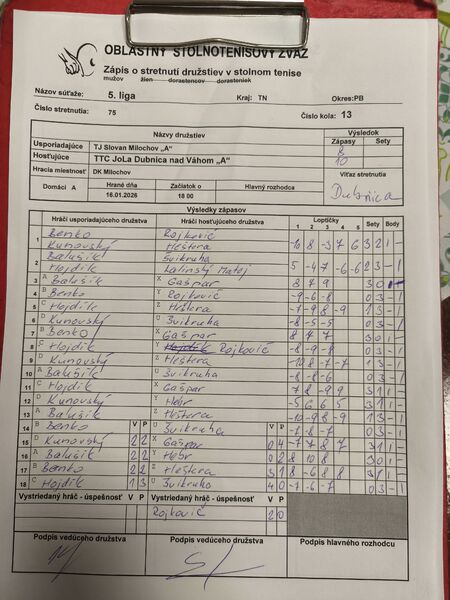 OBLASTNÝ STOLNOTENISOVÝ ZVÄZ
Zápis o stretnutí družstiev v stolnom tenise
mužov žien dorastencov dorasteniek
Názov súťaže: 5. liga Kraj: TN Okres:PB
Číslo stretnutia: 75 Číslo kola: 13
Názvy družstiev Výsledok
Usporiadajúce TJ Slovan Milochov „A“ Zápasy
Hosťujúce TTC JoLa Dubnica nad Váhom „A“ 8
Hracia miestnosť DK Milochov 10
Domáci A Hrané dňa Začiatok o Hlavný rozhodca Víťaz stretnutia
16.01.2026 18 00 Dubnica
Výsledky zápasov
Hráči usporiadajúceho družstva Hráči hosťujúceho družstva Loptičky Sety Body
1 2 3 4 5
1 Benko Rojkovič
Kunovský Heštera 10 8 -3 7 6 3 2 1 -
2 Balušík Švikruha
Hojdík Lalinský Matej 5 -4 7 -6 -6 2 3 - 1
3 A Balušík X Gašpar 8 7 9 3 0 1 -
4 B Benko Y Rojkovič -9 -6 -8 0 3 - 1
5 C Hojdík Z Heštera -7 -9 8 -9 1 3 - 1
6 D Kunovský U Švikruha -8 -5 -5 0 3 - 1
7 B Benko X Gašpar 8 4 7 3 0 1 -
8 C Hojdík Y Rojkovič -8 -9 -9 0 3 - 1
9 D Kunovský Z Heštera -10 8 -7 -7 1 3 - 1
10 A Balušík U Švikruha 0 3 - 1
11 C Hojdík X Gašpar 7 8 -9 9 3 1 1 -
12 D Kunovský Y Hebr -5 6 6 5 3 1 1 -
13 A Balušík Z Heštera -10 -9 8 -9 1 3 - 1
14 B Benko V P U Švikruha V P -7 -8 -7 0 3 - 1
15 D Kunovský 2 2 X Gašpar 0 4 -7 7 8 7 3 1 1 -
16 A Balušík 2 2 Y Hebr 0 2 8 10 8 3 0 1 -
17 B Benko 2 2 Z Heštera 3 1 8 -6 8 8 3 1 1 -
18 C Hojdík 1 3 U Švikruha 4 0 -7 -6 -7 0 3 - 1
Vystriedaný hráč - úspešnosť V P Vystriedaný hráč - úspešnosť V P
Rojkovič 2 0
Podpis vedúceho družstva Podpis vedúceho družstva Podpis hlavného rozhodcu